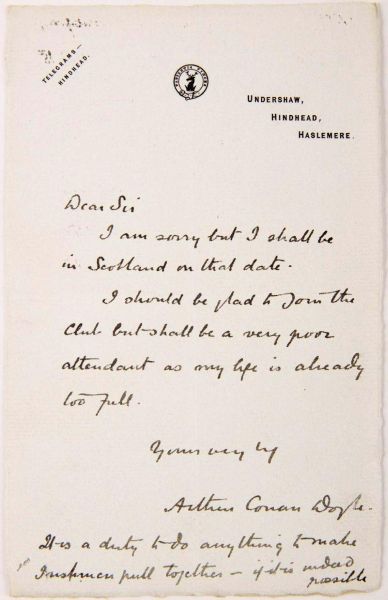 TELEGRAMS—
HINDHEAD.
UNDERSHAW,
HINDHEAD,
HASLEMERE.
Dear Sir
I am sorry but I shall be
in Scotland on that date.
I should be glad to join the
Club but shall be a very poor
attendant as my life is already
too full.
Yours very try
Arthur Conan Doyle.
It is a duty to do anything to make
Irishmen pull together — if it is indeed
possible